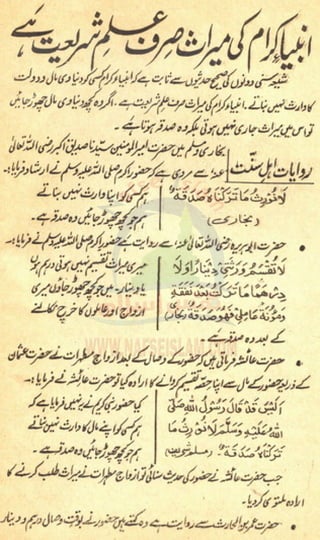 انبیاء کرام کی میراث صرف علم شریعت ہے
شیعہ سنی دونوں کی صحیح حدیثوں سے ثابت ہے کہ انبیاء کرام کسی کو دنیاوی مال و دولت
کا وارث نہیں بناتے۔ انبیاء کرام کی میراث صرف علم شریعت ہے۔ اگر وہ کچھ دنیاوی مال چھوڑ جائیں
تو اس میں میراث جاری نہیں ہوتی بلکہ وہ صدقہ ہوتا ہے۔
روایات اہل سنت
بخاری و مسلم میں حضرت امیر المومنین سیدنا صدیق اکبر رضی اللہ تعالیٰ
عنہ سے مروی ہے کہ حضور اکرم صلی اللہ علیہ وسلم نے ارشاد فرمایا:۔
لَا نُوْرِثُ مَا تَرَكْنَاهُ صَدَقَةٌ
(بخاری)
ہم کسی کو اپنا وارث نہیں بناتے
ہم جو کچھ چھوڑ جائیں وہ صدقہ ہے۔
• حضرت ابوہریرہ رضی اللہ تعالیٰ عنہ سے روایت ہے حضور اکرم صلی اللہ علیہ وسلم نے فرمایا:۔
لَا تَقْتَسِمُ وَرَثَتِي دِيْنَارًا وَلَا
دِرْهَمًا مَا تَرَكْتُ بَعْدَ نَفَقَةِ
وَمُؤْنَةِ عَامِلِي فَهُوَ صَدَقَةٌ بخاری
میری میراث تقسیم نہیں ہوتی درہم ہوں
یا دینار۔ میں جو کچھ چھوڑ جاؤں میری
ازواج اور عاملوں کا خرچ نکالنے
کے بعد وہ صدقہ ہے۔
• حضرت عائشہ فرماتی ہیں کہ حضور کے وصال کے بعد ازواج مطہرات نے حضرت عثمان
کے ذریعہ حضور کے مال سے اپنا حصہ تقسیم کروانے کا ارادہ کیا تو حضرت عائشہ نے فرمایا:۔
اَلَيْسَ قَدْ قَالَ رَسُوْلُ اللهِ صَلَّى
اللهُ عَلَيْهِ وَسَلَّمَ لَا نُوْرِثُ مَا
تَرَكْنَاهُ صَدَقَةٌ
کیا حضور نبی کریم نے یہ نہیں فرمایا ہے کہ
ہم کسی کو اپنے مال کا وارث نہیں بناتے
ہم جو کچھ چھوڑ جائیں وہ صدقہ ہے۔
جب حضرت عائشہ نے حضور کی حدیث سنائی تو ازواج مطہرات نے میراث طلب کرنے کا
ارادہ ملتوی کر دیا۔
• حضرت عمرو بن الحارث سے روایت ہے وہ کہتے ہیں حضور نے بوقت وصال درہم و دینار